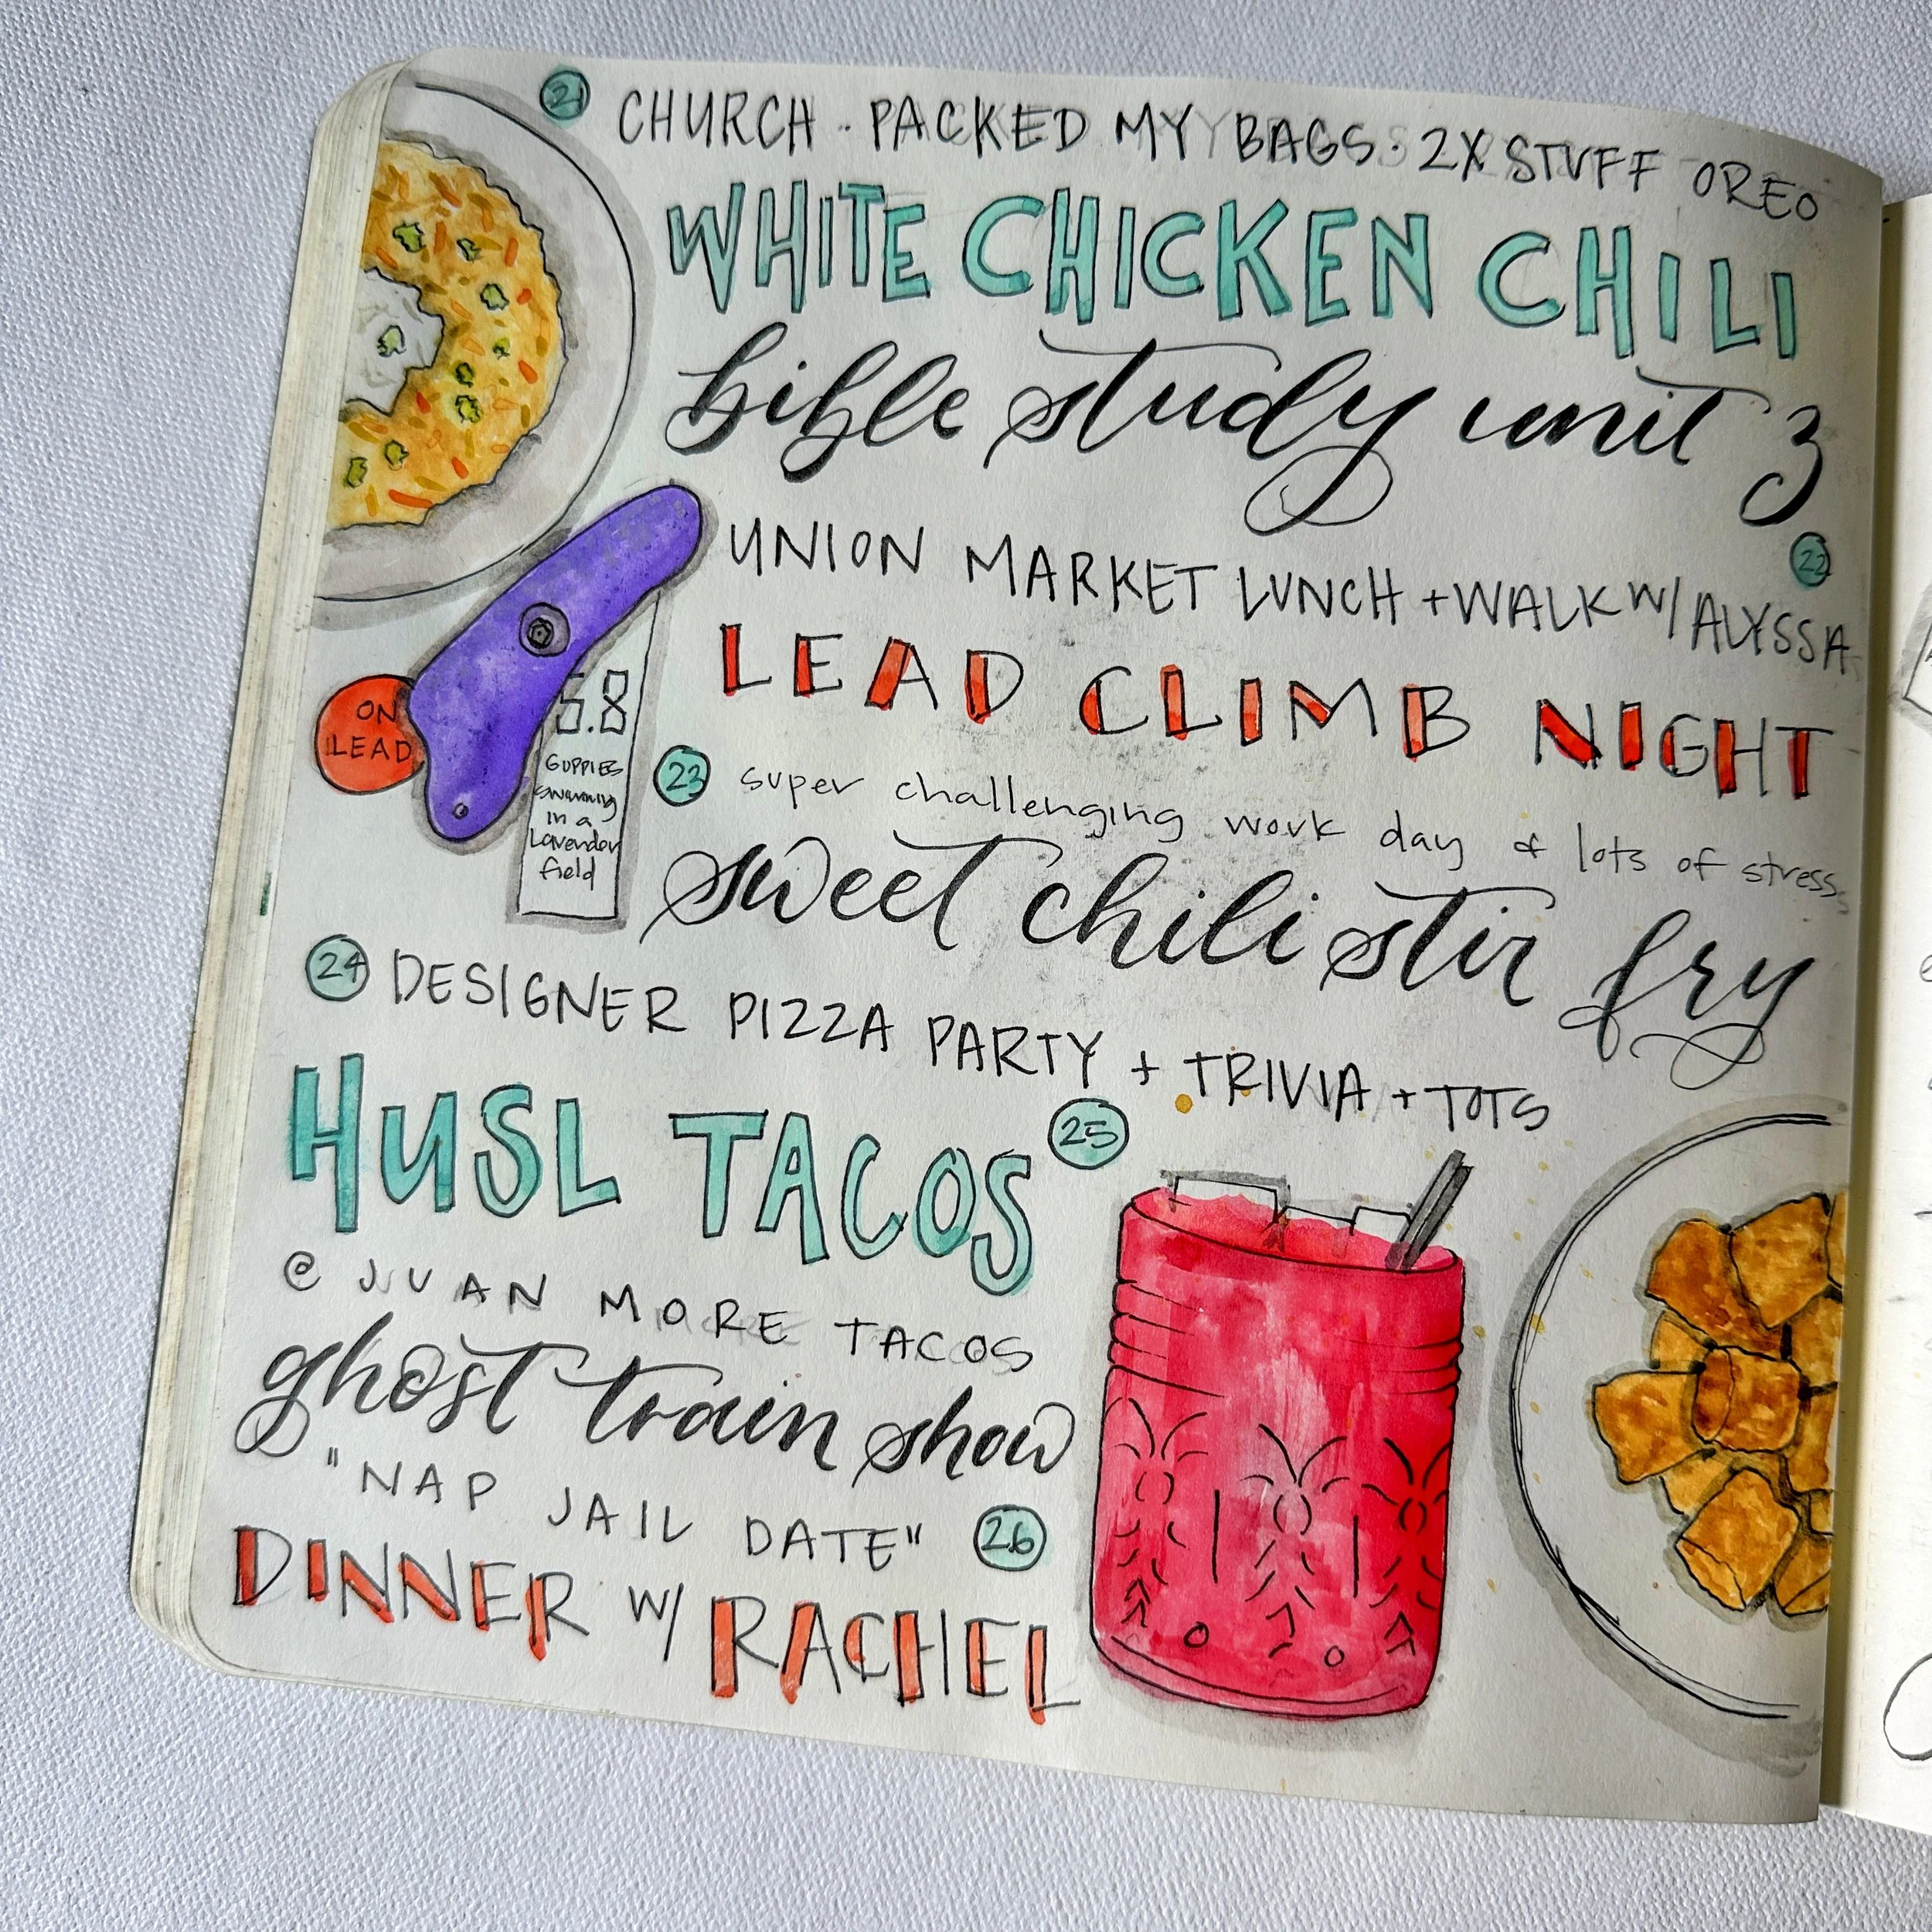 21 CHURCH · PACKED MY BAGS · 2X STUFF OREO
WHITE CHICKEN CHILI
bible study unit 3
22
UNION MARKET LUNCH + WALK W/ ALYSSA
LEAD CLIMB NIGHT
ON
LEAD
5.8
GUPPIES
swimming
in a
Lavender
field
23 super challenging work day & lots of stress
sweet chili stir fry
24 DESIGNER PIZZA PARTY + TRIVIA + TOTS
HUSL TACOS 25
@ JUAN MORE TACOS
ghost train show
"NAP JAIL DATE" 26
DINNER W/ RACHEL